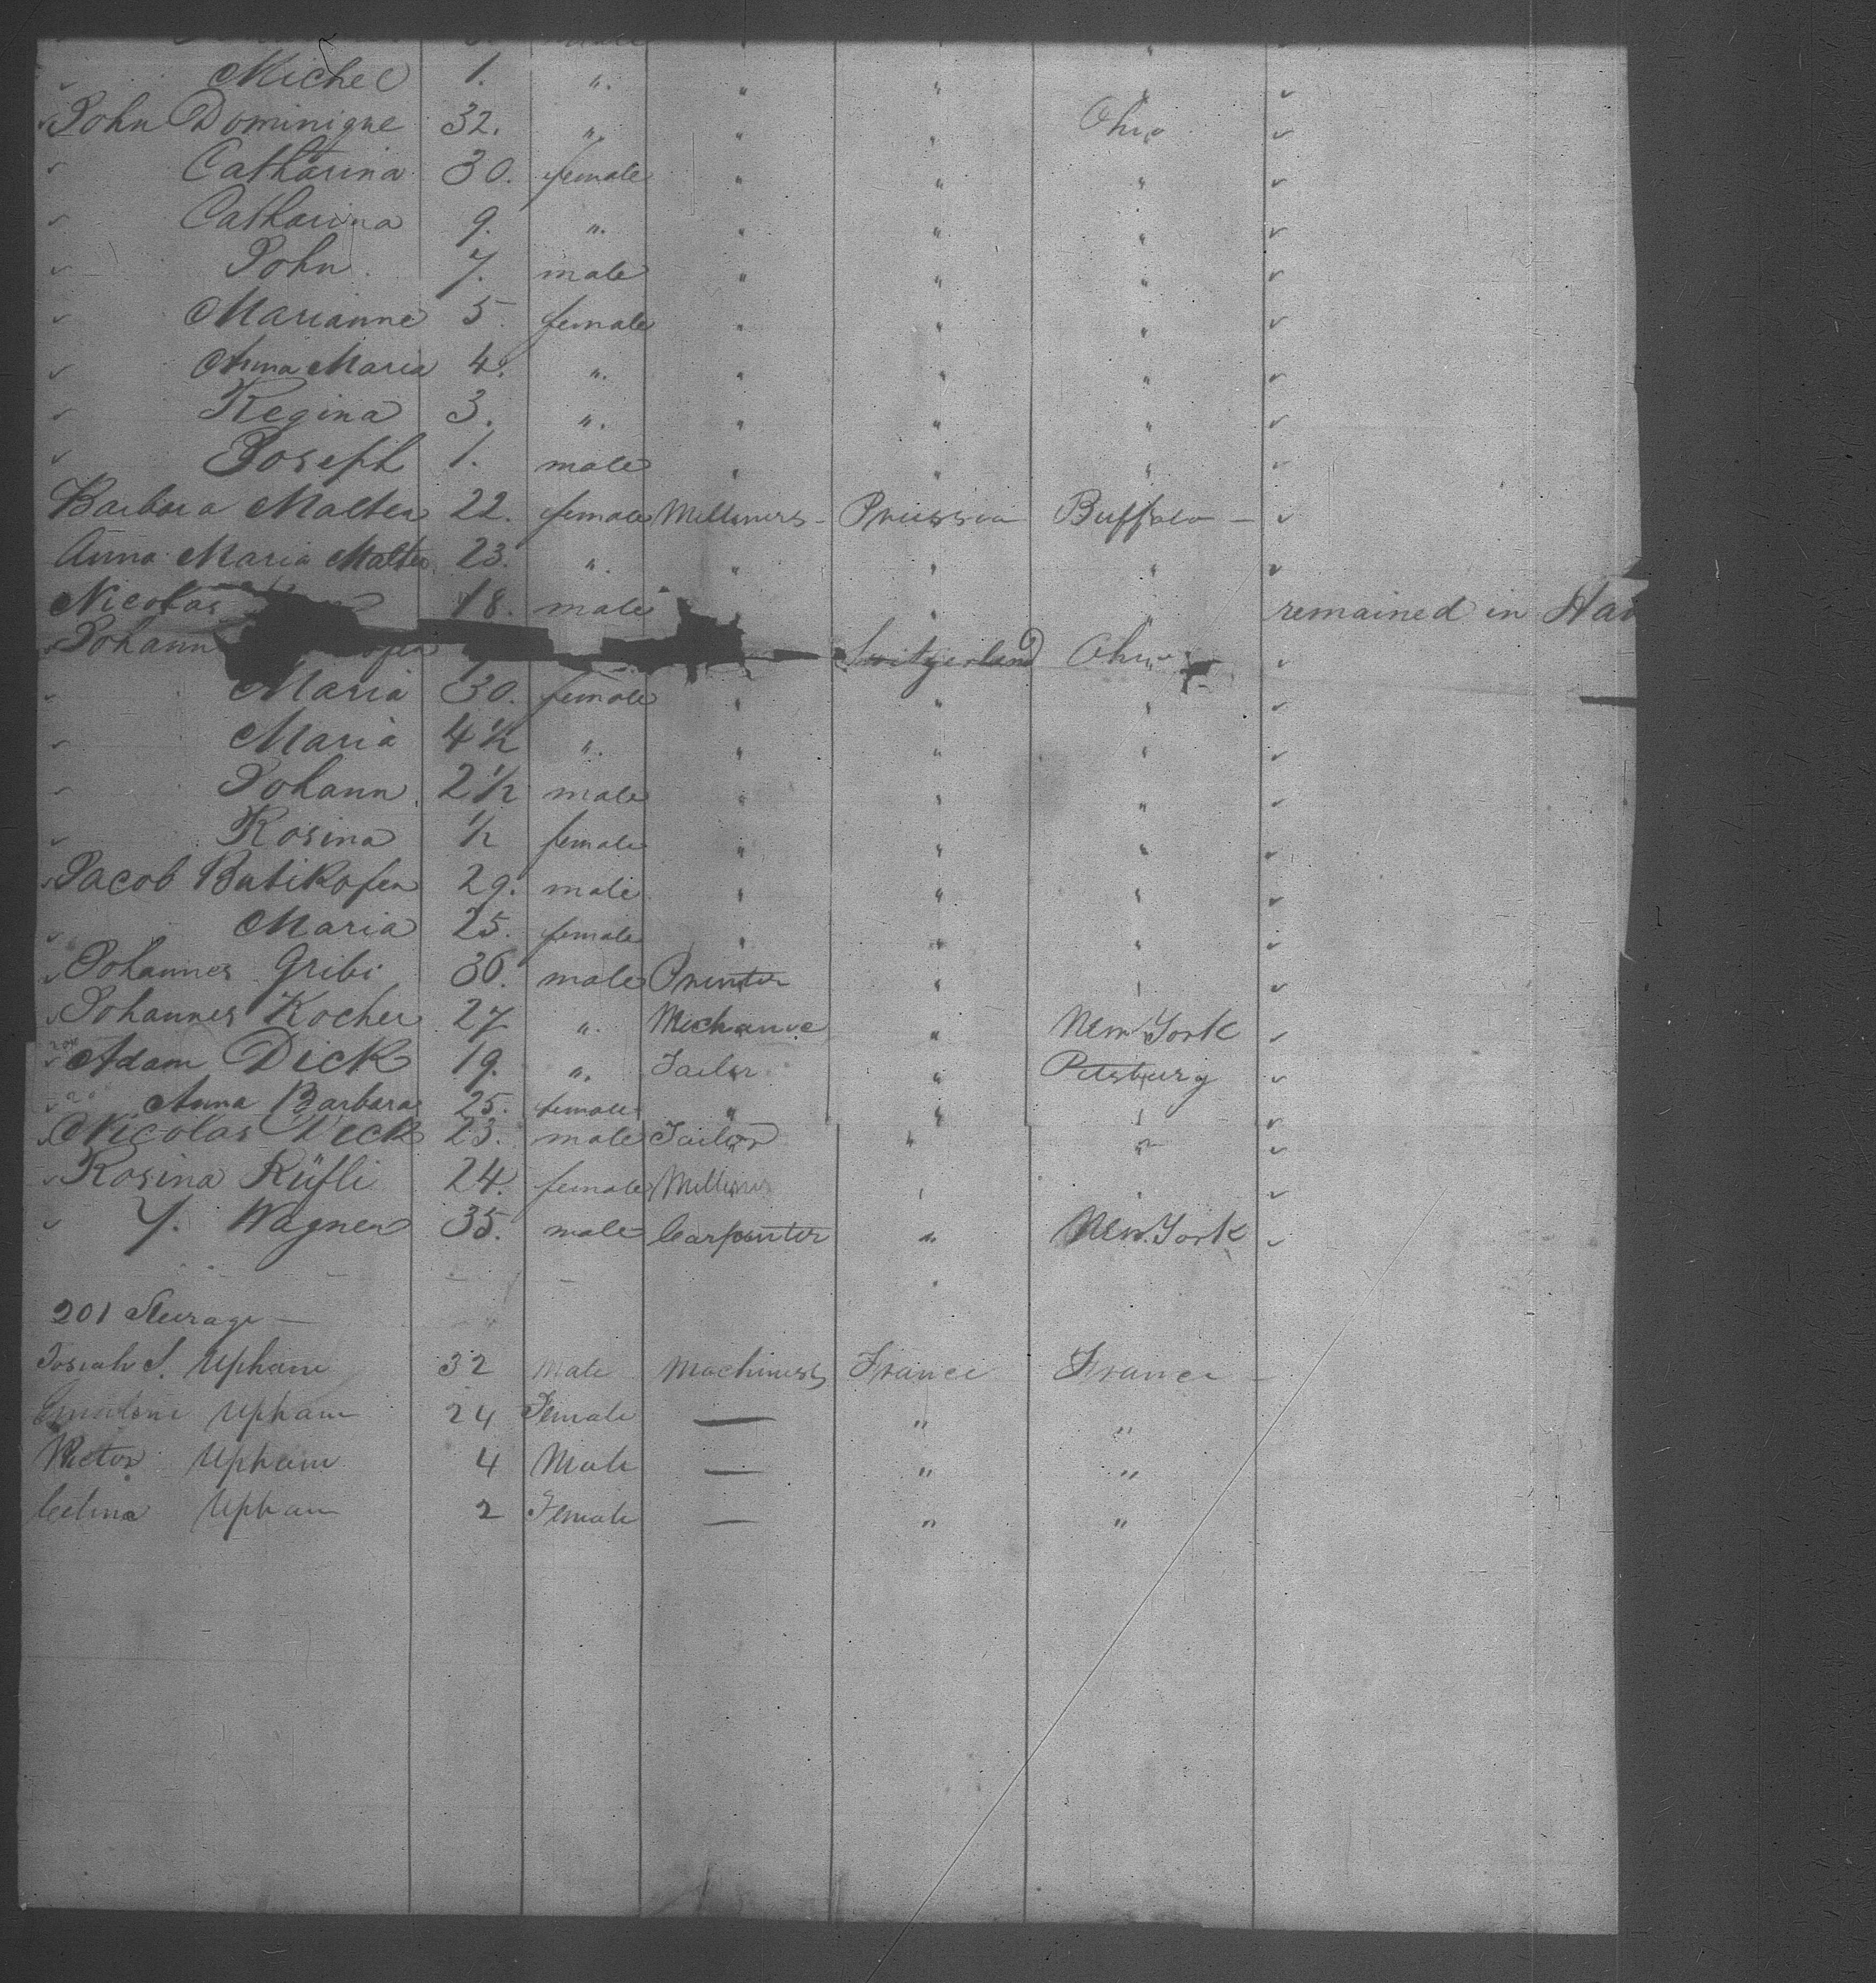 Michel 1. ". " " "
John Dominique 32. ". " " Ohio
Catharina 30. female " " "
Catharina 9. ". " " "
John. 7. male " " "
Marianne 5. female " " "
Anna Maria 4. ". " " "
Regina 3. ". " " "
Joseph 1. male " " "
Barbara Malter 22. female Milliners - Prussia Buffalo -
Anna Maria Malter 23. ". " " "
Nicolas 18. male " " " remained in Hav
Johann Switzerland Ohio
Maria 30. female " " "
Maria 4½ ". " " "
Johann 2½ male " " "
Rosina ½ female " " "
Jacob Butikofer 29. male " " "
Maria 25. female " " "
Johannes Gribi 36. male Printer " "
Johannes Kocher 27 ". Mechanic " New York
Adam Dick 19. ". Tailor " Pittsburg
Anna Barbara 25. female " " "
Nicolas Dick 23. male Tailor " "
Rosina Rüfli 24. female Milliner " "
J. Wagner 35. male Carpenter " New York
201 Steerage —
Josiah S. Upham 32 Male Machinist France France -
Upham 24 Female — " "
Victor Upham 4 Male — " "
Celina Upham 2 Female — " "